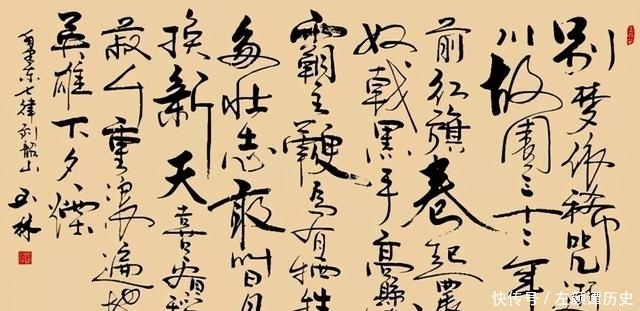 别梦依稀咒逝
川故園三十二年
前红旗卷起農
奴戟黑手高縣
霸主鞭為有牺牲
多壮志敢叫日月
换新天喜看稻
菽千重浪遍地
英雄下夕煙
毛泽东七律到韶山 玉林
快传号/
历史